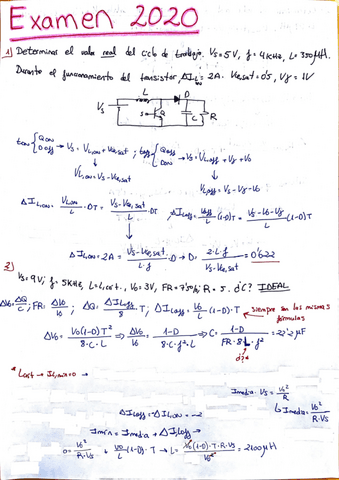 Examen 2020
1) Determinar el valor real del ciclo de trabajo. Vs=5V, f=4KHz, L=350μH.
Durante el funcionamiento del transistor, ΔIL=2A. Vce,sat=0'5, Vγ=1V
L D
Vs S Q C R
ton { Q ON D OFF → Vs = VL,ON + Vce,sat ; toff { Q OFF D ON → Vs = VL,off + Vγ + V0
VL,ON = Vs - Vce,sat VL,off = Vs - Vγ - V0
ΔIL,ON = VL,ON/L · DT = Vs - Vce,sat/L · DT , ΔIL,off = Voff/L (1-D)T = Vs - V0 - Vγ/L (1-D)T
ΔIL,ON = 2A = Vs - Vce,sat/L·f · D → D = 2·L·f/Vs - Vce,sat = 0'622
2)
Vs = 9V, f = 5KHz, L = Lcrit, V0 = 3V, FR = 7'50%, R = 5. ¿C? IDEAL
ΔV0 = ΔQ/C ; FR = ΔV0/V0 ; ΔQ = ΔIL,off/8 · T ; ΔIL,off = V0/L · (1-D) · T
siempre son las mismas fórmulas
ΔV0 = V0(1-D)T²/8·C·L ⇒ ΔV0/V0 = 1-D/8·C·f²·L ⇒ C = 1-D/FR·8·L·f² = 22'2 μF
¿?
* Lcrit → IL,min = 0 →
Imedia · Vs = V0²/R
↳ Imedia = V0²/R·Vs
ΔIL,off = -ΔIL,ON = -2
Imin = Imedia + ΔIL,off →
0 = V0²/R·Vs + V0/L (1-D) · T → L = V0(1-D)·T·R·Vs/V0² = 2100μH